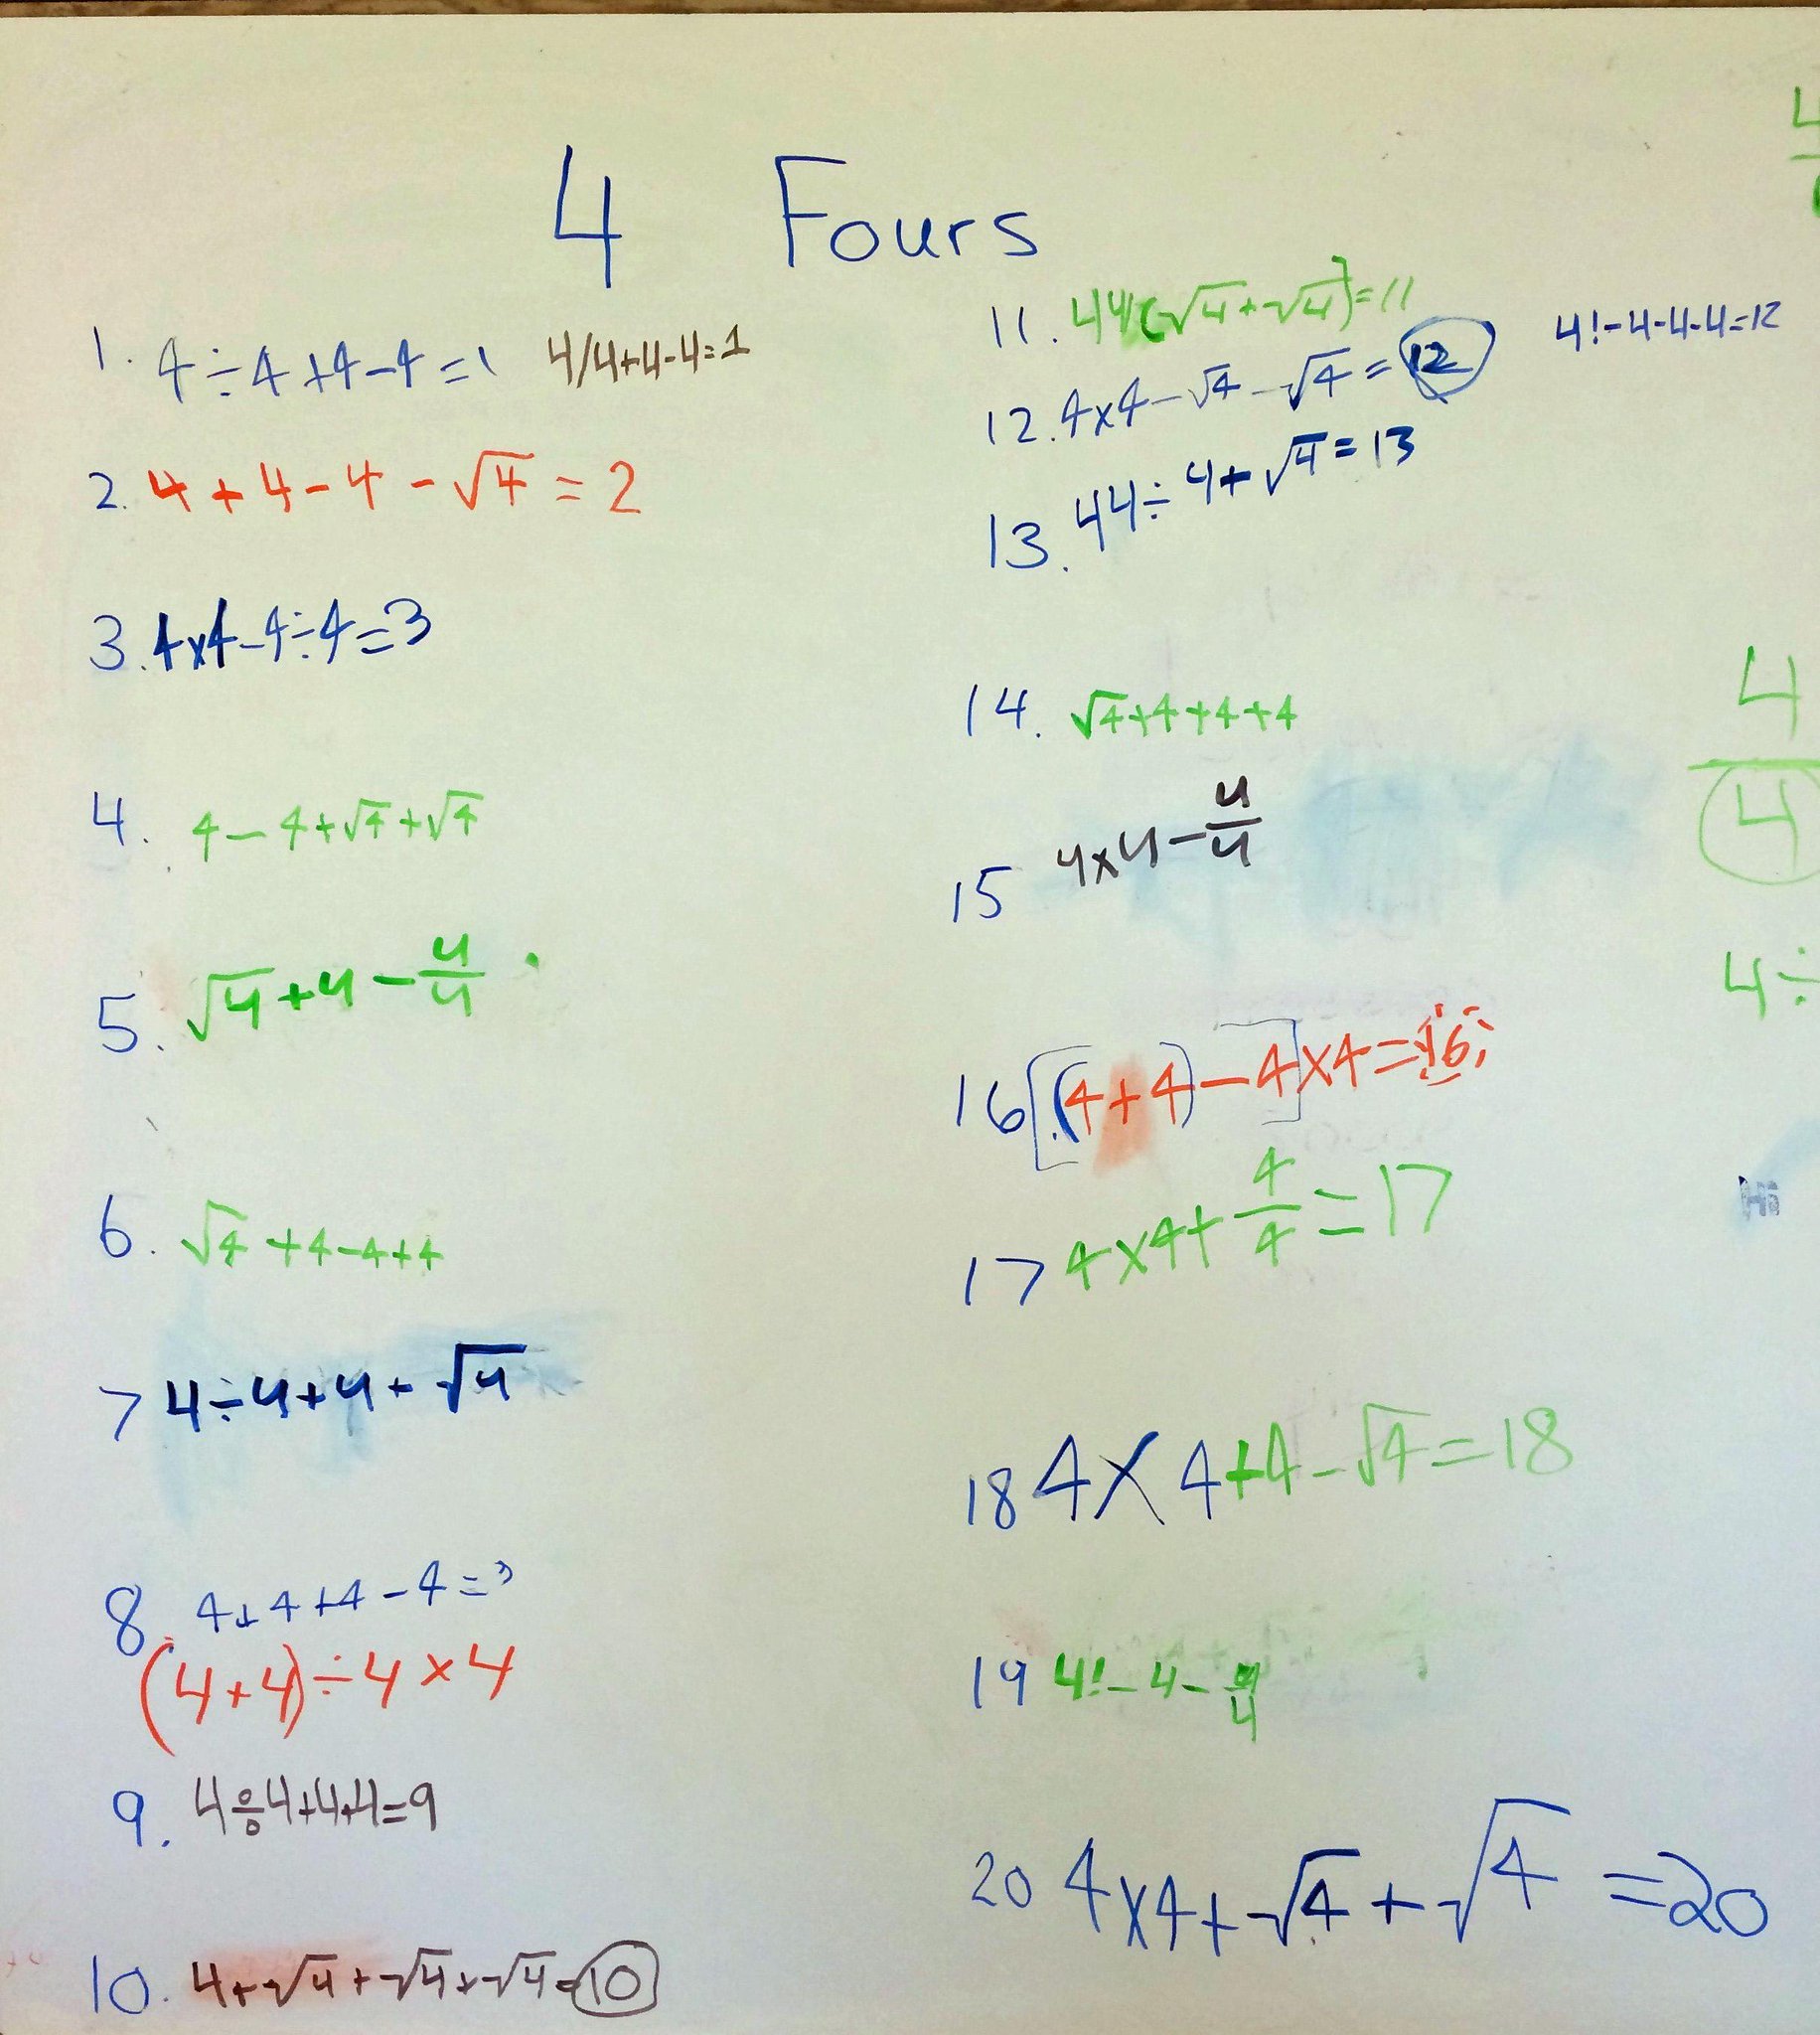 4 Fours
1. 4÷4+4-4=1 4/4+4-4=1
2. 4+4-4-√4=2
3. 4x4-4÷4=3
4. 4-4+√4+√4
5. √4+4-4/4
6. √4+4-4+4
7 4÷4+4+√4
8. 4+4+4-4=
(4+4)÷4×4
9. 4÷4+4+4=9
10. 4+√4+√4+√4=10
11. 44/(√4+√4)=11
12. 4x4-√4-√4=12 4!-4-4-4=12
13. 44÷4+√4=13
14. √4+4+4+4
15 4x4-4/4
16 [(4+4)-4]x4=16
17 4x4+4/4=17
18 4x4+4-√4=18
19 4!-4-4/4
20 4x4+√4+√4=20
4
4
4
4÷
Hi